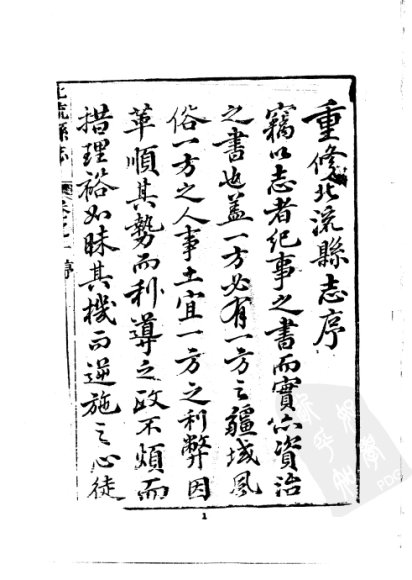 重修北流縣志序
竊以志者紀事之書而實亦資治
之書也蓋一方必有一方之疆域風
俗一方之人事土宜一方之利弊因
革順其勢而利導之政不煩而
措理裕如昧其機而逆施之心徒
北流縣志 卷之一 序
1
PDG